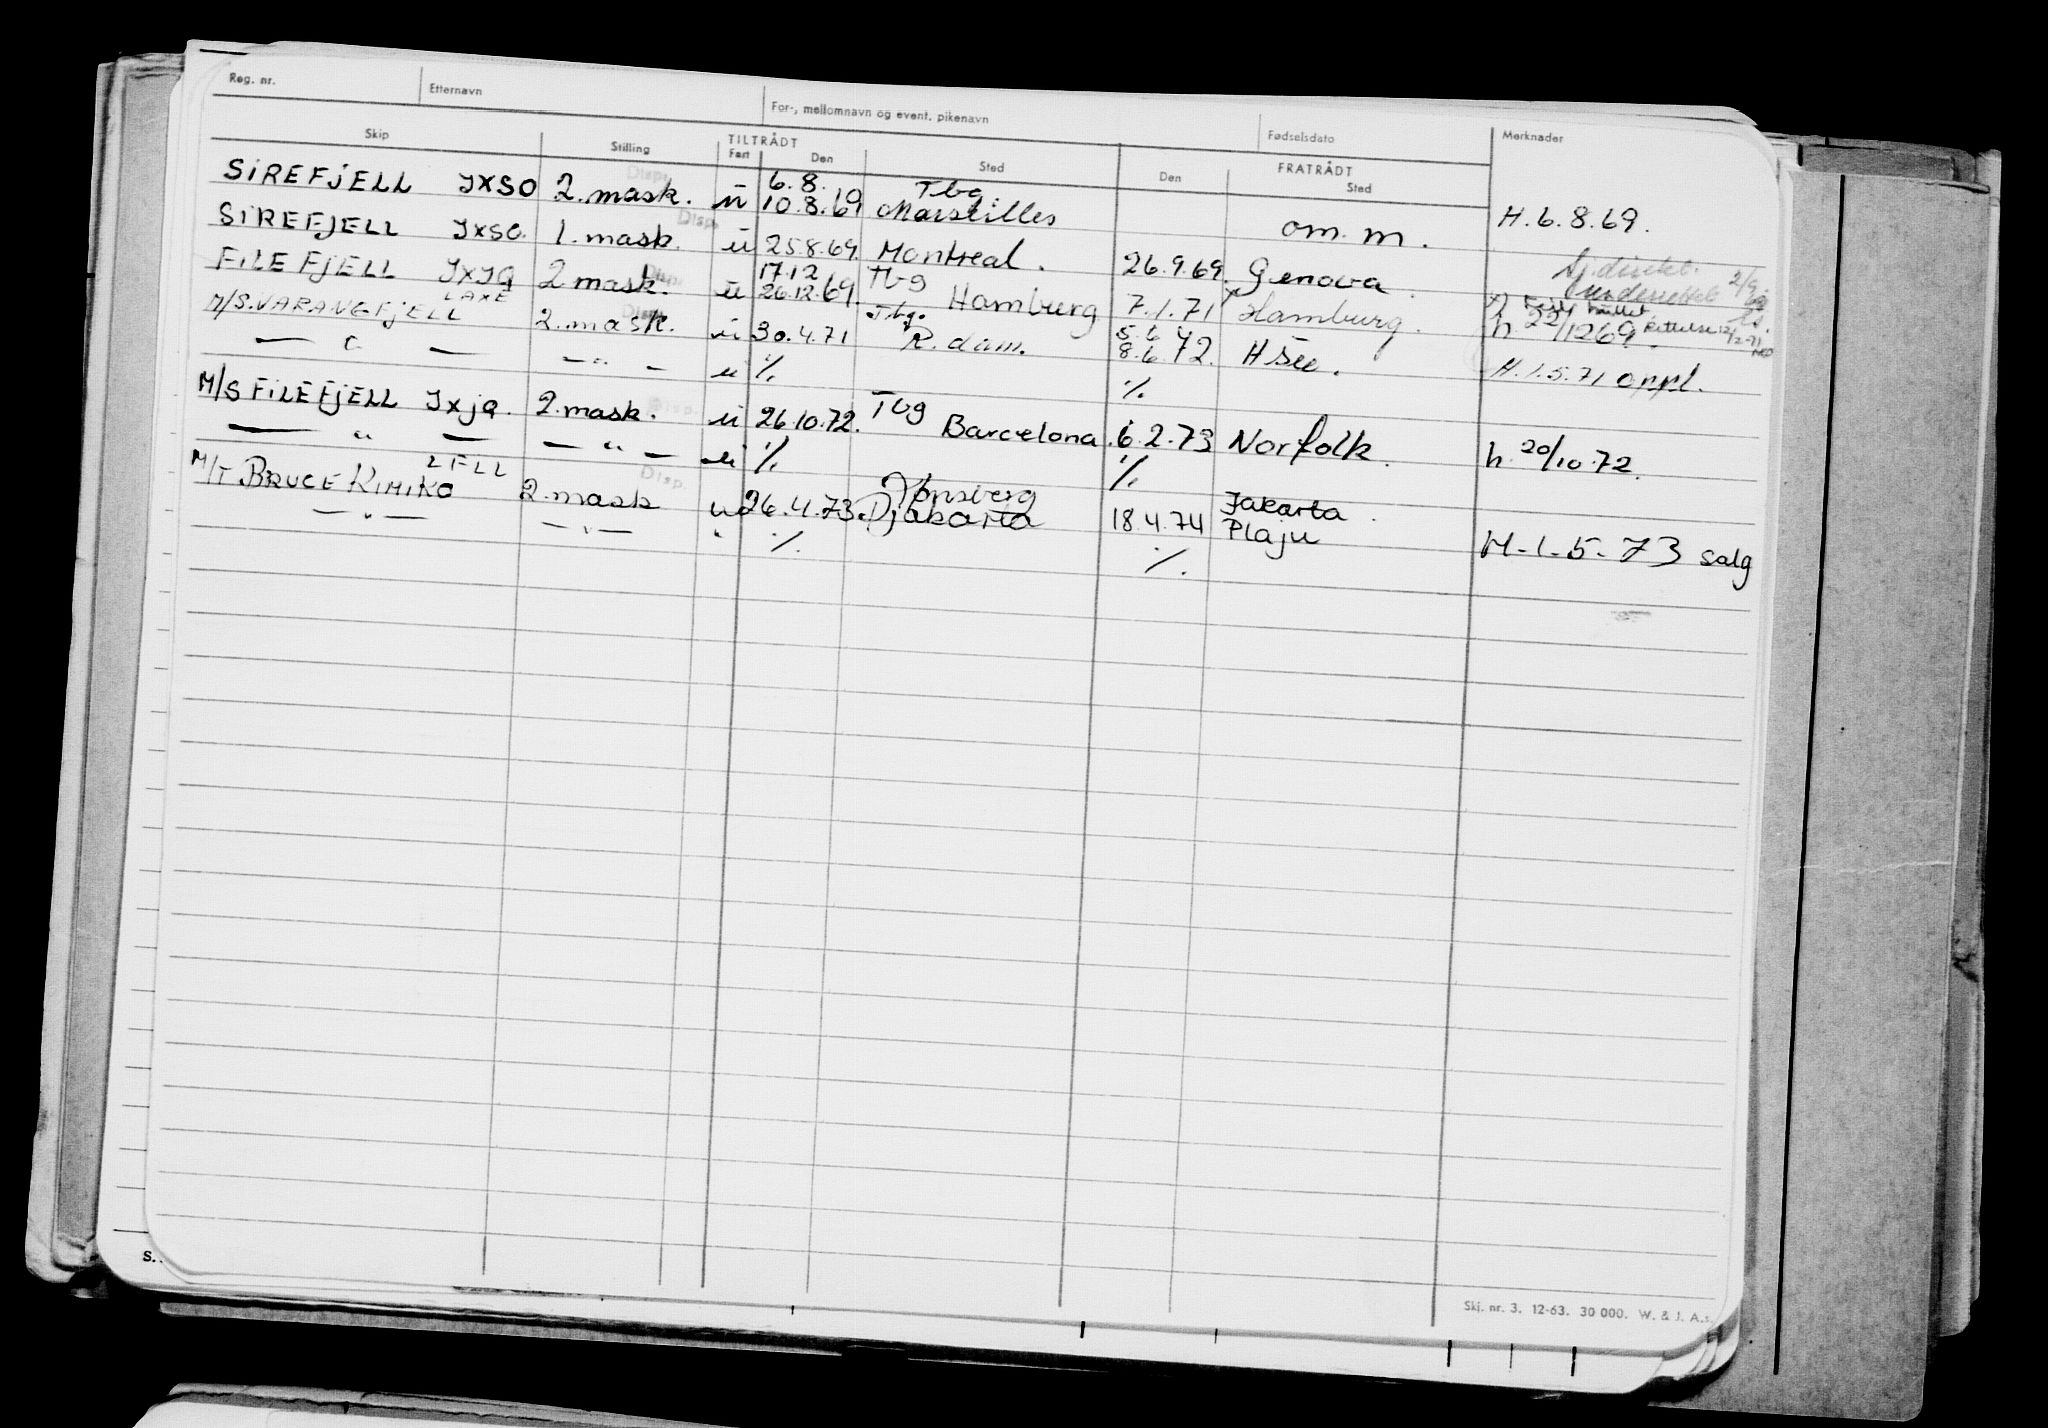 Reg. nr. Etternavn For-, mellomnavn og event. pikenavn Fødselsdato Merknader
Skip Stilling TILTRÅDT Fart Den Sted FRATRÅDT Den Sted
SIREFJELL JXSO 2. mask. Disp. u 6.8. 10.8.69 Tbg Marseilles om. m. H. 6.8.69.
SIREFJELL JXSO. 1. mask. Disp. u 25.8.69. Montreal. 26.9.69. Genova
FILEFJELL JXJQ 2 mask. Disp. u 17.12 26.12.69. Tbg Hamburg 7.1.71 x Hamburg. h 22/1269.
M/S. VARANGFJELL LAXE 2. mask. Disp. u 30.4.71 Tbg. R. dam. 5.6 8.6.72. H. 1.5.71 oppl.
— " — — " — u %. %.
M/S FILEFJELL JXJQ. 2. mask. Disp. u 26.10.72. Tbg Barcelona. 6.2.73 Norfolk. h. 20/10.72.
— " — — " — u %. %.
M/T BRUCE KIMIKO LFLL 2. mask Disp. u 26.4.73. Tønsberg Djakarta 18.4.74 Jakarta. Plaju H-1-5-73 salg
— " — — " — " %. %.
S.
Skj. nr. 3. 12-63. 30 000. W. & J. A.s.